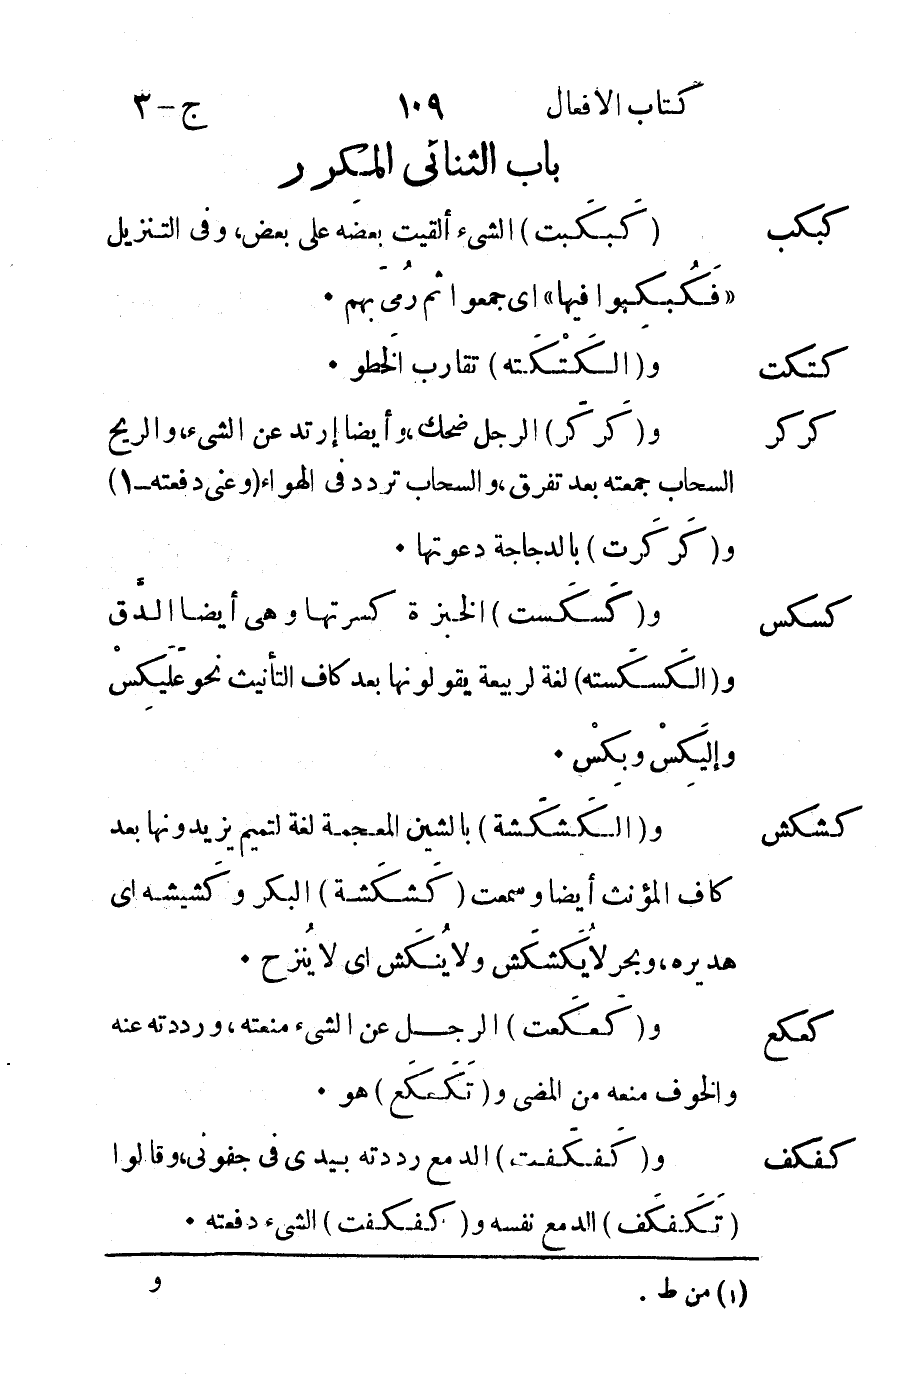 كتاب الافعال ١٠٩ ج-٣
باب الثنائى المكرر
كبكب (كَبكَبت) الشىء ألقيت بعضَه على بعض، وفى التنزيل
«فَكُبكِبوا فيها» اى جمعوا ثم رُمىَ بهم ٠
كتكت و(الكَتْكَته) تقارب الخَطو ٠
كركر و(كَركَر) الرجل ضحك، وأيضا إرتد عن الشىء، والريح
السحاب جمعته بعد تفرق، والسحاب تردد فى الهواء (وعنى دفعته-١)
و(كَركَرت) بالدجاجة دعوتها ٠
كسكس و(كَسكَست) الخبزة كسرتها وهى أيضا الدَّق
و(الكَسكَسته) لغة لربيعة يقولونها بعد كاف التأنيث نحو عَلَيكِسْ
وإلَيكِسْ وبِكِسْ ٠
كشكش و(الكَشكَشة) بالشين المعجمة لغة لتميم يزيدونها بعد
كاف المؤنث أيضا وسمعت (كَشكَشة) البكر وكَشيشه اى
هديره، وبحر لايُكَشكَش ولايُنكَش اى لايُنزح ٠
كعكع و(كَعكَعت) الرجل عن الشىء منعته، ورددته عنه
والخوف منعه من المضى و(تَكَعكَع) هو ٠
كفكف و(كَفكَفت) الدمع رددته بيدى فى جفونى، وقالوا
(تَكَفكَف) الدمع نفسه و(كفكفت) الشىء دفعته ٠
(١) من ط . و